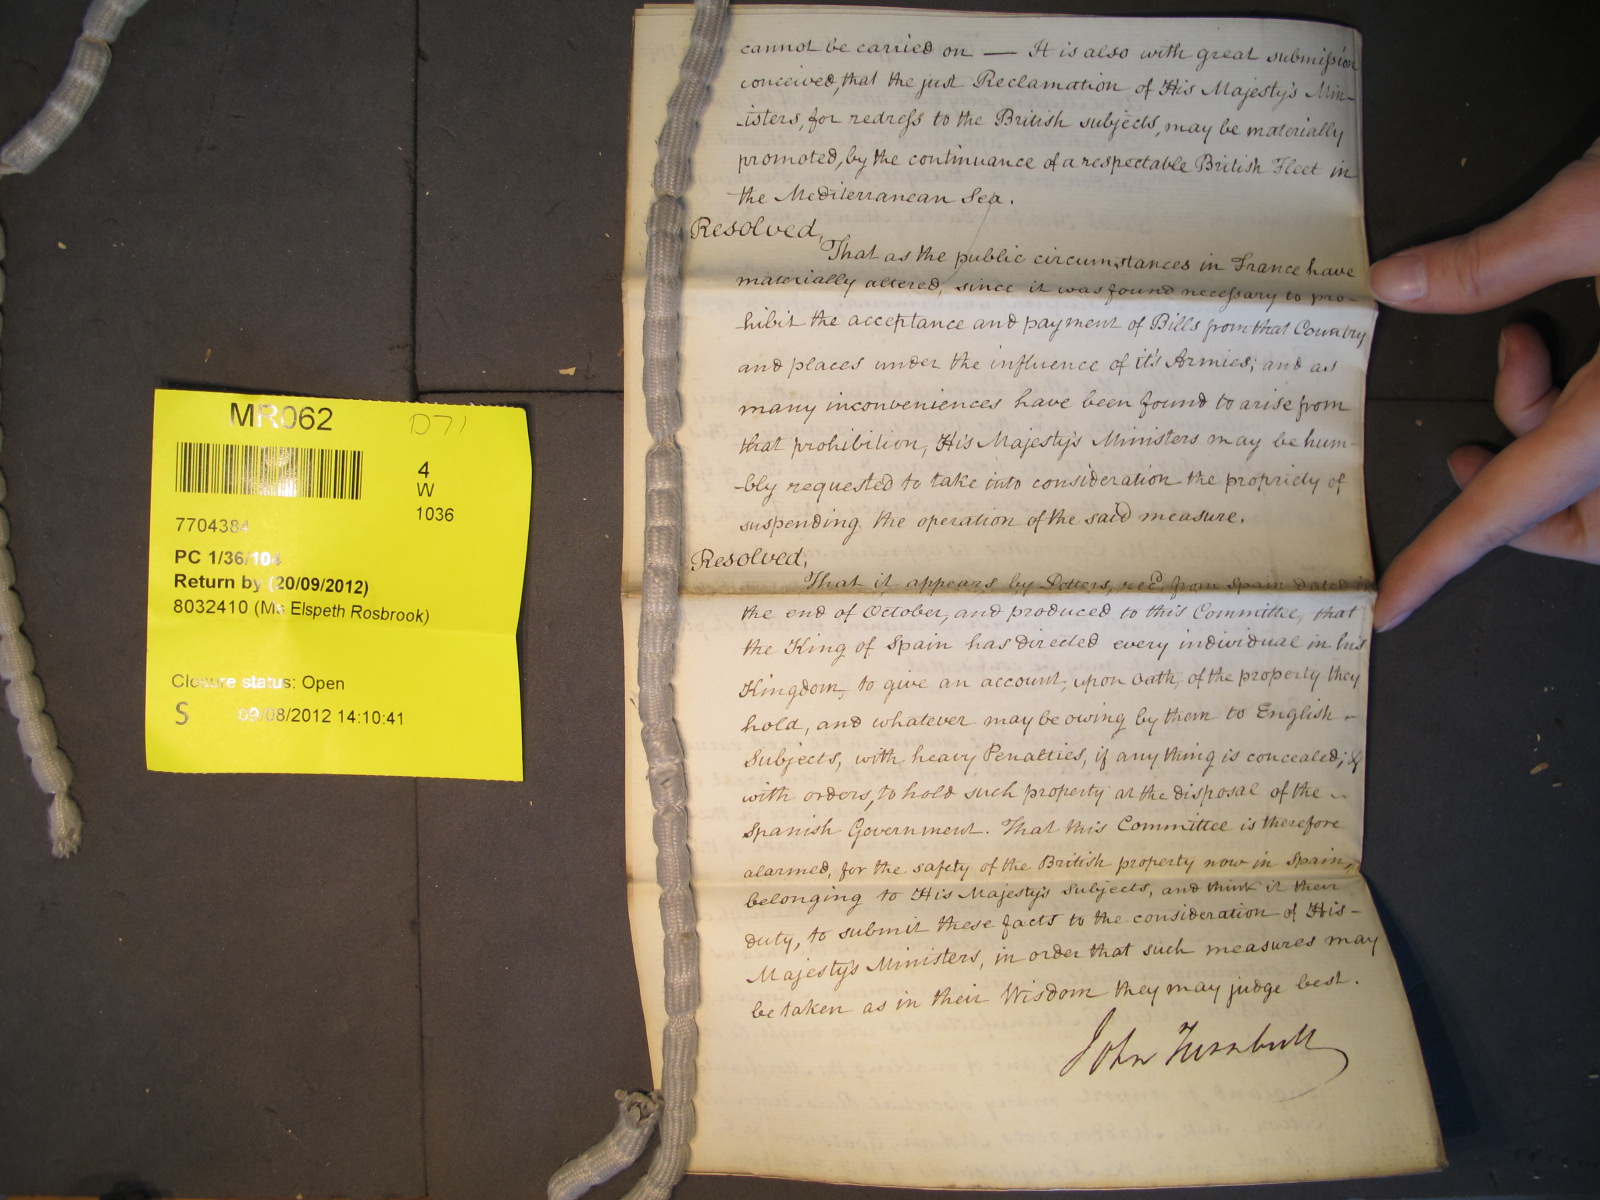 cannot be carried on — It is also with great submission
conceived, that the just Reclamation of His Majesty's Min-
-isters, for redress to the British subjects, may be materially
promoted, by the continuance of a respectable British Fleet in
the Mediterranean Sea.
Resolved,
That as the public circumstances in France have
materially altered, since it was found necessary to pro-
hibit the acceptance and payment of Bills from that Country
and places under the influence of it's Armies; and as
many inconveniences have been found to arise from
that prohibition, His Majesty's Ministers may be hum-
-bly requested to take into consideration the propriety of
suspending the operation of the said measure.
Resolved,
That it appears by Letters, recd from Spain dated in
the end of October, and produced to this Committee, that
the King of Spain has directed every individual in his
Kingdom, to give an account, upon Oath, of the property they
hold, and whatever may be owing by them to English
Subjects, with heavy Penalties, if any thing is concealed; &
with orders, to hold such property at the disposal of the
Spanish Government. That this Committee is therefore
alarmed, for the safety of the British property now in Spain,
belonging to His Majesty's Subjects, and think it their
duty, to submit these facts to the consideration of His
Majesty's Ministers, in order that such measures may
be taken as in their Wisdom they may judge best.
John Turnbull
MR062
D71
4
W
1036
7704384
PC 1/36/104
Return by (20/09/2012)
8032410 (Ms Elspeth Rosbrook)
Closure status: Open
S 09/08/2012 14:10:41